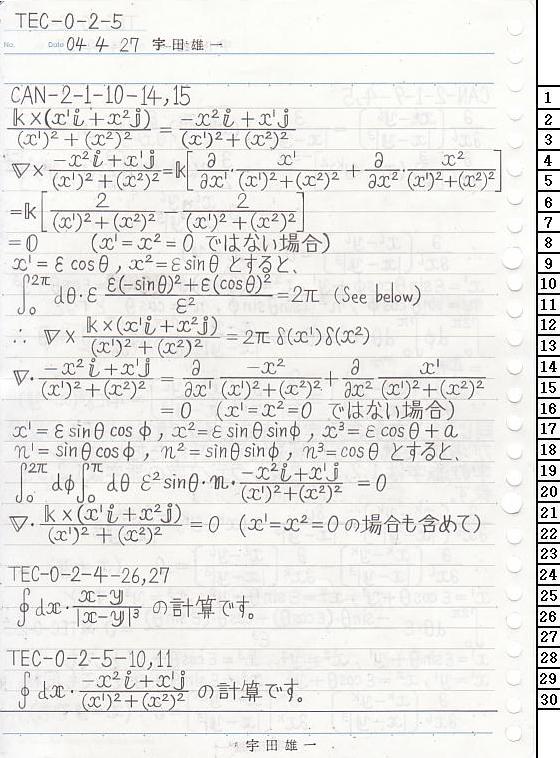 TEC-0-2-5
No. Date 04 4 27 宇田雄一
CAN-2-1-10-14,15
𝕜×(x¹𝕚+x²𝕛)/((x¹)²+(x²)²) = (-x²𝕚+x¹𝕛)/((x¹)²+(x²)²)
∇×(-x²𝕚+x¹𝕛)/((x¹)²+(x²)²)=𝕜[∂/∂x¹・x¹/((x¹)²+(x²)²) + ∂/∂x²・x²/((x¹)²+(x²)²)]
=𝕜[2/((x¹)²+(x²)²) - 2/((x¹)²+(x²)²)]
=0 (x¹=x²=0 ではない場合)
x¹=εcosθ, x²=εsinθ とすると、
∫₀^2π dθ・ε (ε(-sinθ)²+ε(cosθ)²)/ε² =2π (See below)
∴ ∇×𝕜×(x¹𝕚+x²𝕛)/((x¹)²+(x²)²) =2πδ(x¹)δ(x²)
∇・(-x²𝕚+x¹𝕛)/((x¹)²+(x²)²) = ∂/∂x¹ -x²/((x¹)²+(x²)²) + ∂/∂x² x¹/((x¹)²+(x²)²)
=0 (x¹=x²=0 ではない場合)
x¹=εsinθcosφ, x²=εsinθsinφ, x³=εcosθ+a
n¹=sinθcosφ, n²=sinθsinφ, n³=cosθ とすると、
∫₀^2π dφ∫₀^π dθ ε²sinθ・𝕟・(-x²𝕚+x¹𝕛)/((x¹)²+(x²)²) =0
∇・𝕜×(x¹𝕚+x²𝕛)/((x¹)²+(x²)²) =0 (x¹=x²=0の場合も含めて)
TEC-0-2-4-26,27
∮d𝕩・(𝕩-𝕪)/|𝕩-𝕪|³ の計算です。
TEC-0-2-5-10,11
∮d𝕩・(-x²𝕚+x¹𝕛)/((x¹)²+(x²)²) の計算です。
宇田雄一
1
2
3
4
5
6
7
8
9
10
11
12
13
14
15
16
17
18
19
20
21
22
23
24
25
26
27
28
29
30